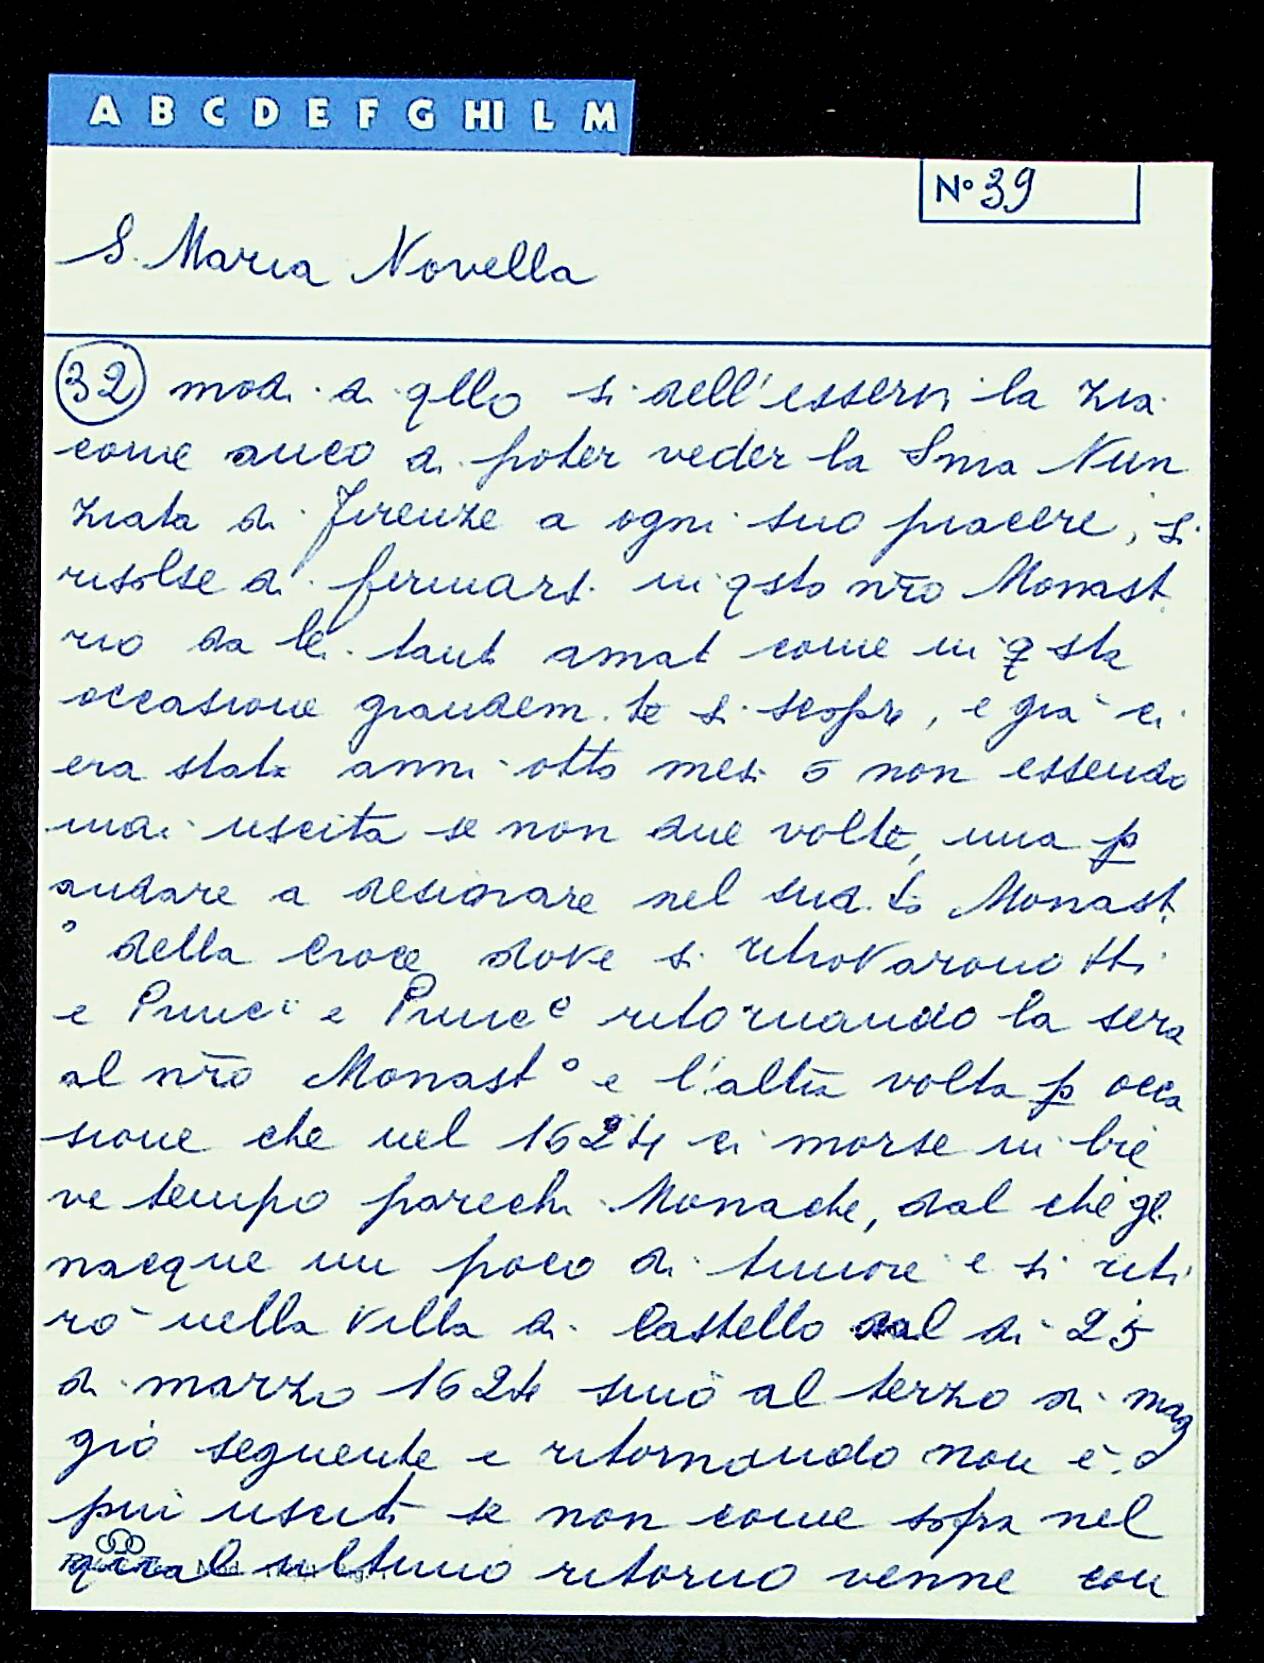 A B C D E F G HI L M
N° 39
S. Maria Novella
32 modi di qllo si dell'esservi la Zia
come anco di poter veder la Sma Nun
ziata di Firenze a ogni suo piacere, si
risolse di fermarsi in qsto nr̃o Monast.
rio da lei tant amat come in qsta
occasione grandem.te si scopre, e già ci
era stata anni otto mesi 5 non essendo
mai uscita se non due volte, una p
andare a desinare nel sud.to Monast.
° della Croce dove si ritrovarono tti
e Princi e Prince ritornando la sera
al nr̃o Monast° e l'altra volta p occa
sione che nel 1624 ci morse in bre
ve tempo parechi Monache, dal che gl.
nacque un poco di timore e si riti
rò nella Villa di Castello dal di 25
di marzo 1624 sino al terzo di mag
gio seguente e ritornando non è
più uscit se non come sopra nel
qual ultimo ritorno venne con